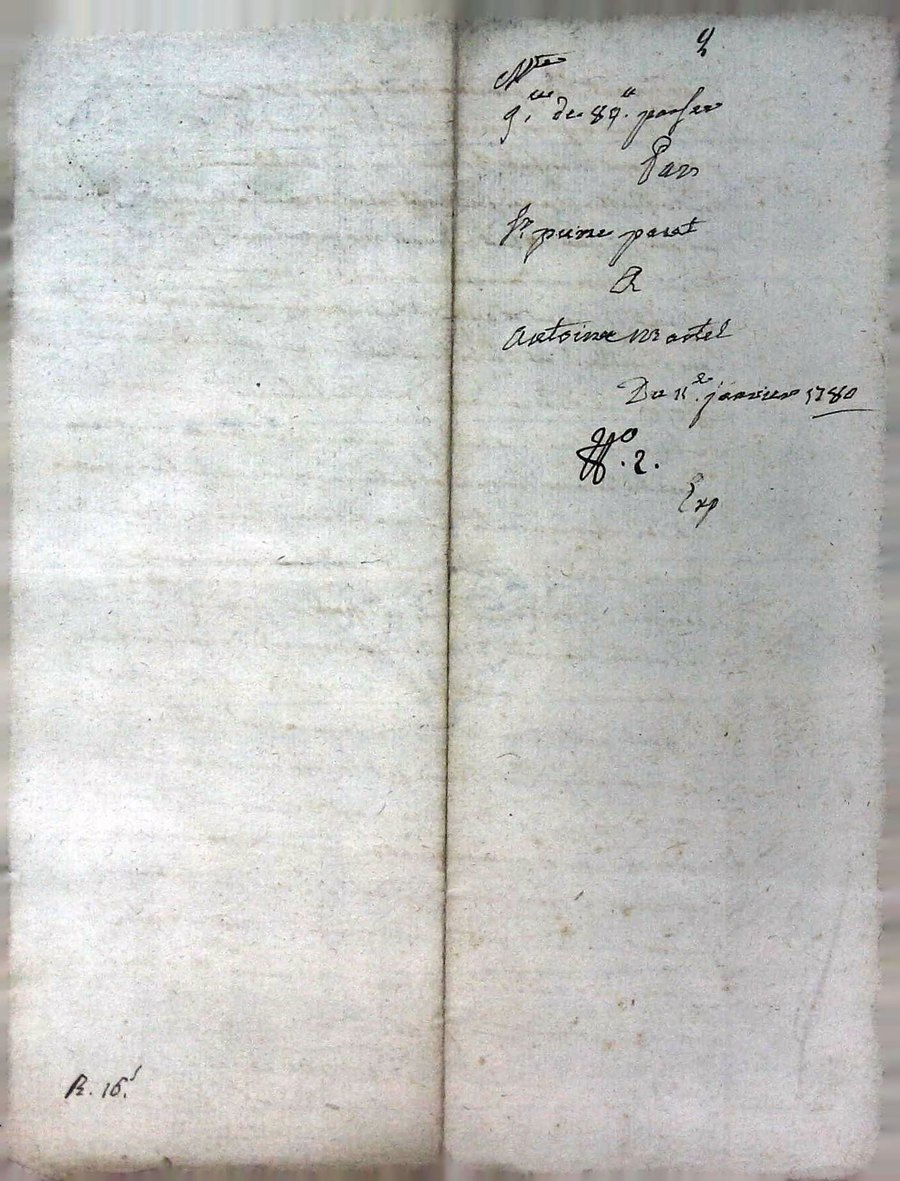 9.ce de 89.tt passée
Par
Sr. pierre
A
Antoine martel
Du 11e. janvier 1780
No. 2.
Exp
R. 16.s